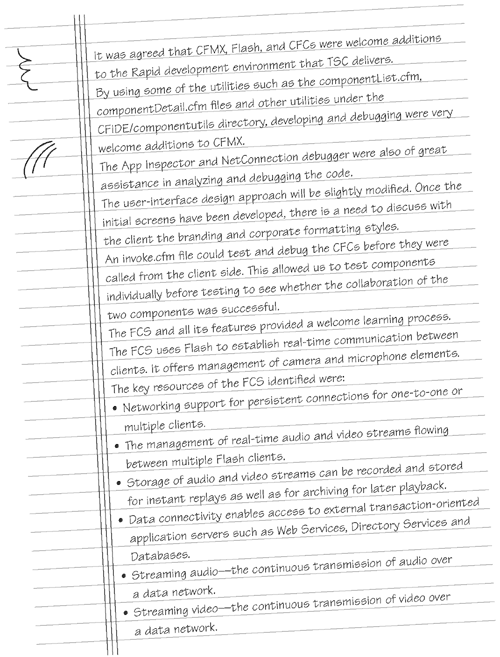 It was agreed that CFMX, Flash, and CFCs were welcome additions
to the Rapid development environment that TSC delivers.
By using some of the utilities such as the componentList.cfm,
componentDetail.cfm files and other utilities under the
CFIDE/componentutils directory, developing and debugging were very
welcome additions to CFMX.
The App Inspector and NetConnection debugger were also of great
assistance in analyzing and debugging the code.
The user-interface design approach will be slightly modified. Once the
initial screens have been developed, there is a need to discuss with
the client the branding and corporate formatting styles.
An invoke.cfm file could test and debug the CFCs before they were
called from the client side. This allowed us to test components
individually before testing to see whether the collaboration of the
two components was successful.
The FCS and all its features provided a welcome learning process.
The FCS uses Flash to establish real-time communication between
clients. It offers management of camera and microphone elements.
The key resources of the FCS identified were:
• Networking support for persistent connections for one-to-one or
multiple clients.
• The management of real-time audio and video streams flowing
between multiple Flash clients.
• Storage of audio and video streams can be recorded and stored
for instant replays as well as for archiving for later playback.
• Data connectivity enables access to external transaction-oriented
application servers such as Web Services, Directory Services and
Databases.
• Streaming audio—the continuous transmission of audio over
a data network.
• Streaming video—the continuous transmission of video over
a data network.